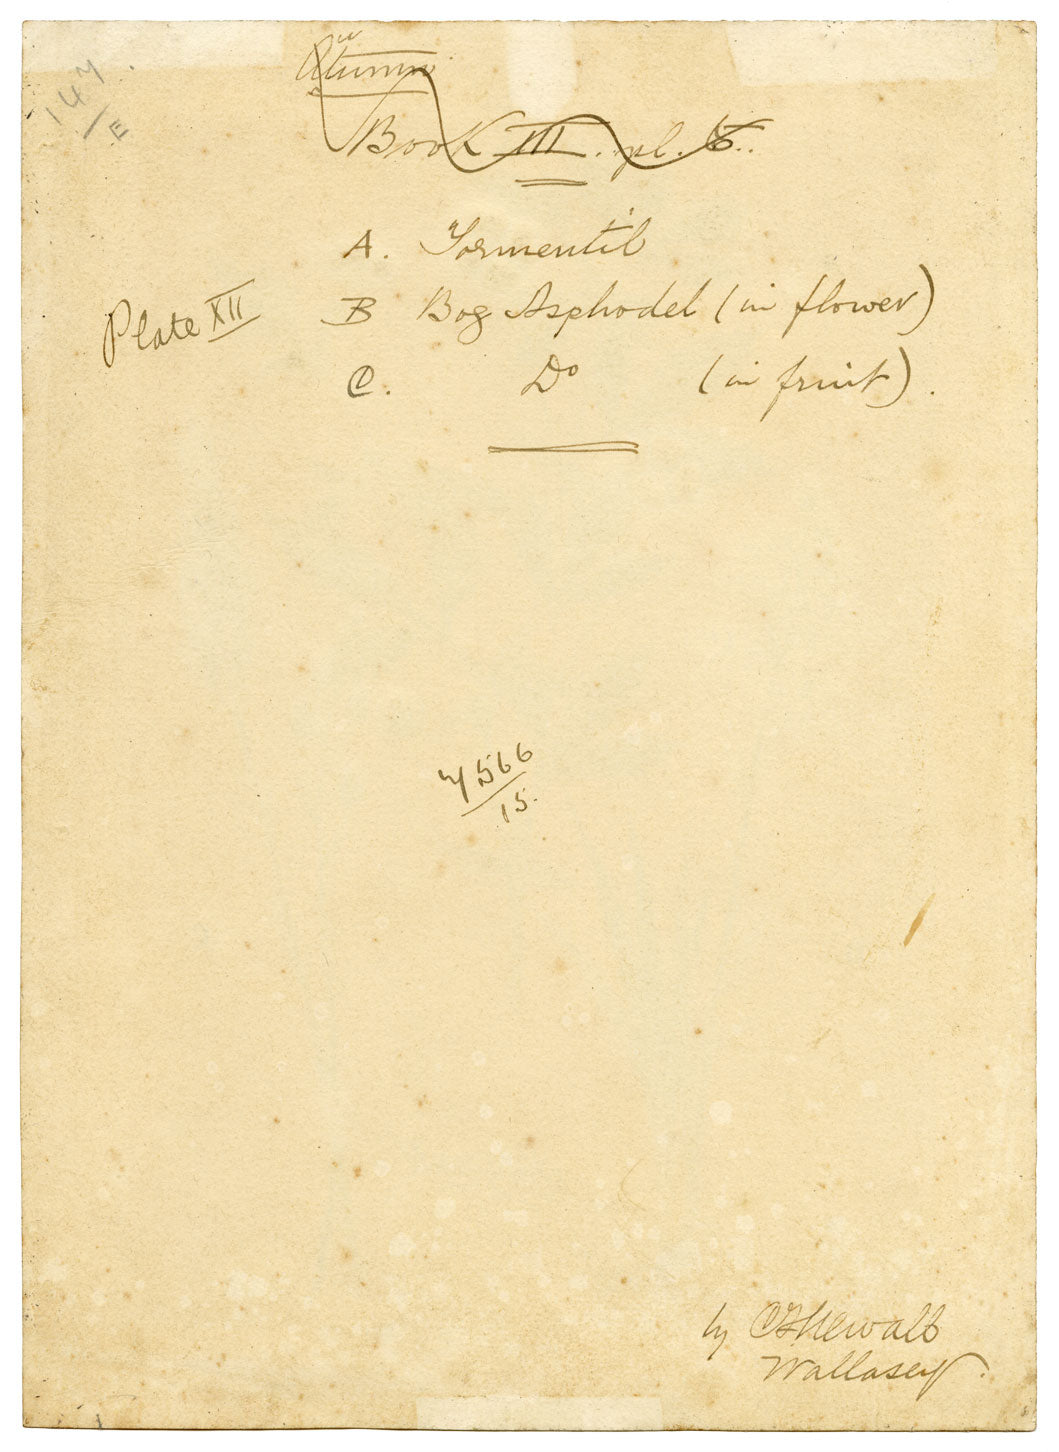 147
E
Autumn
Book III. pl. 6.
A. Tormentil
Plate XII
B Bog Asphodel (in flower)
C. Do (in fruit).
566
15.
by C F Newall
Wallasey.